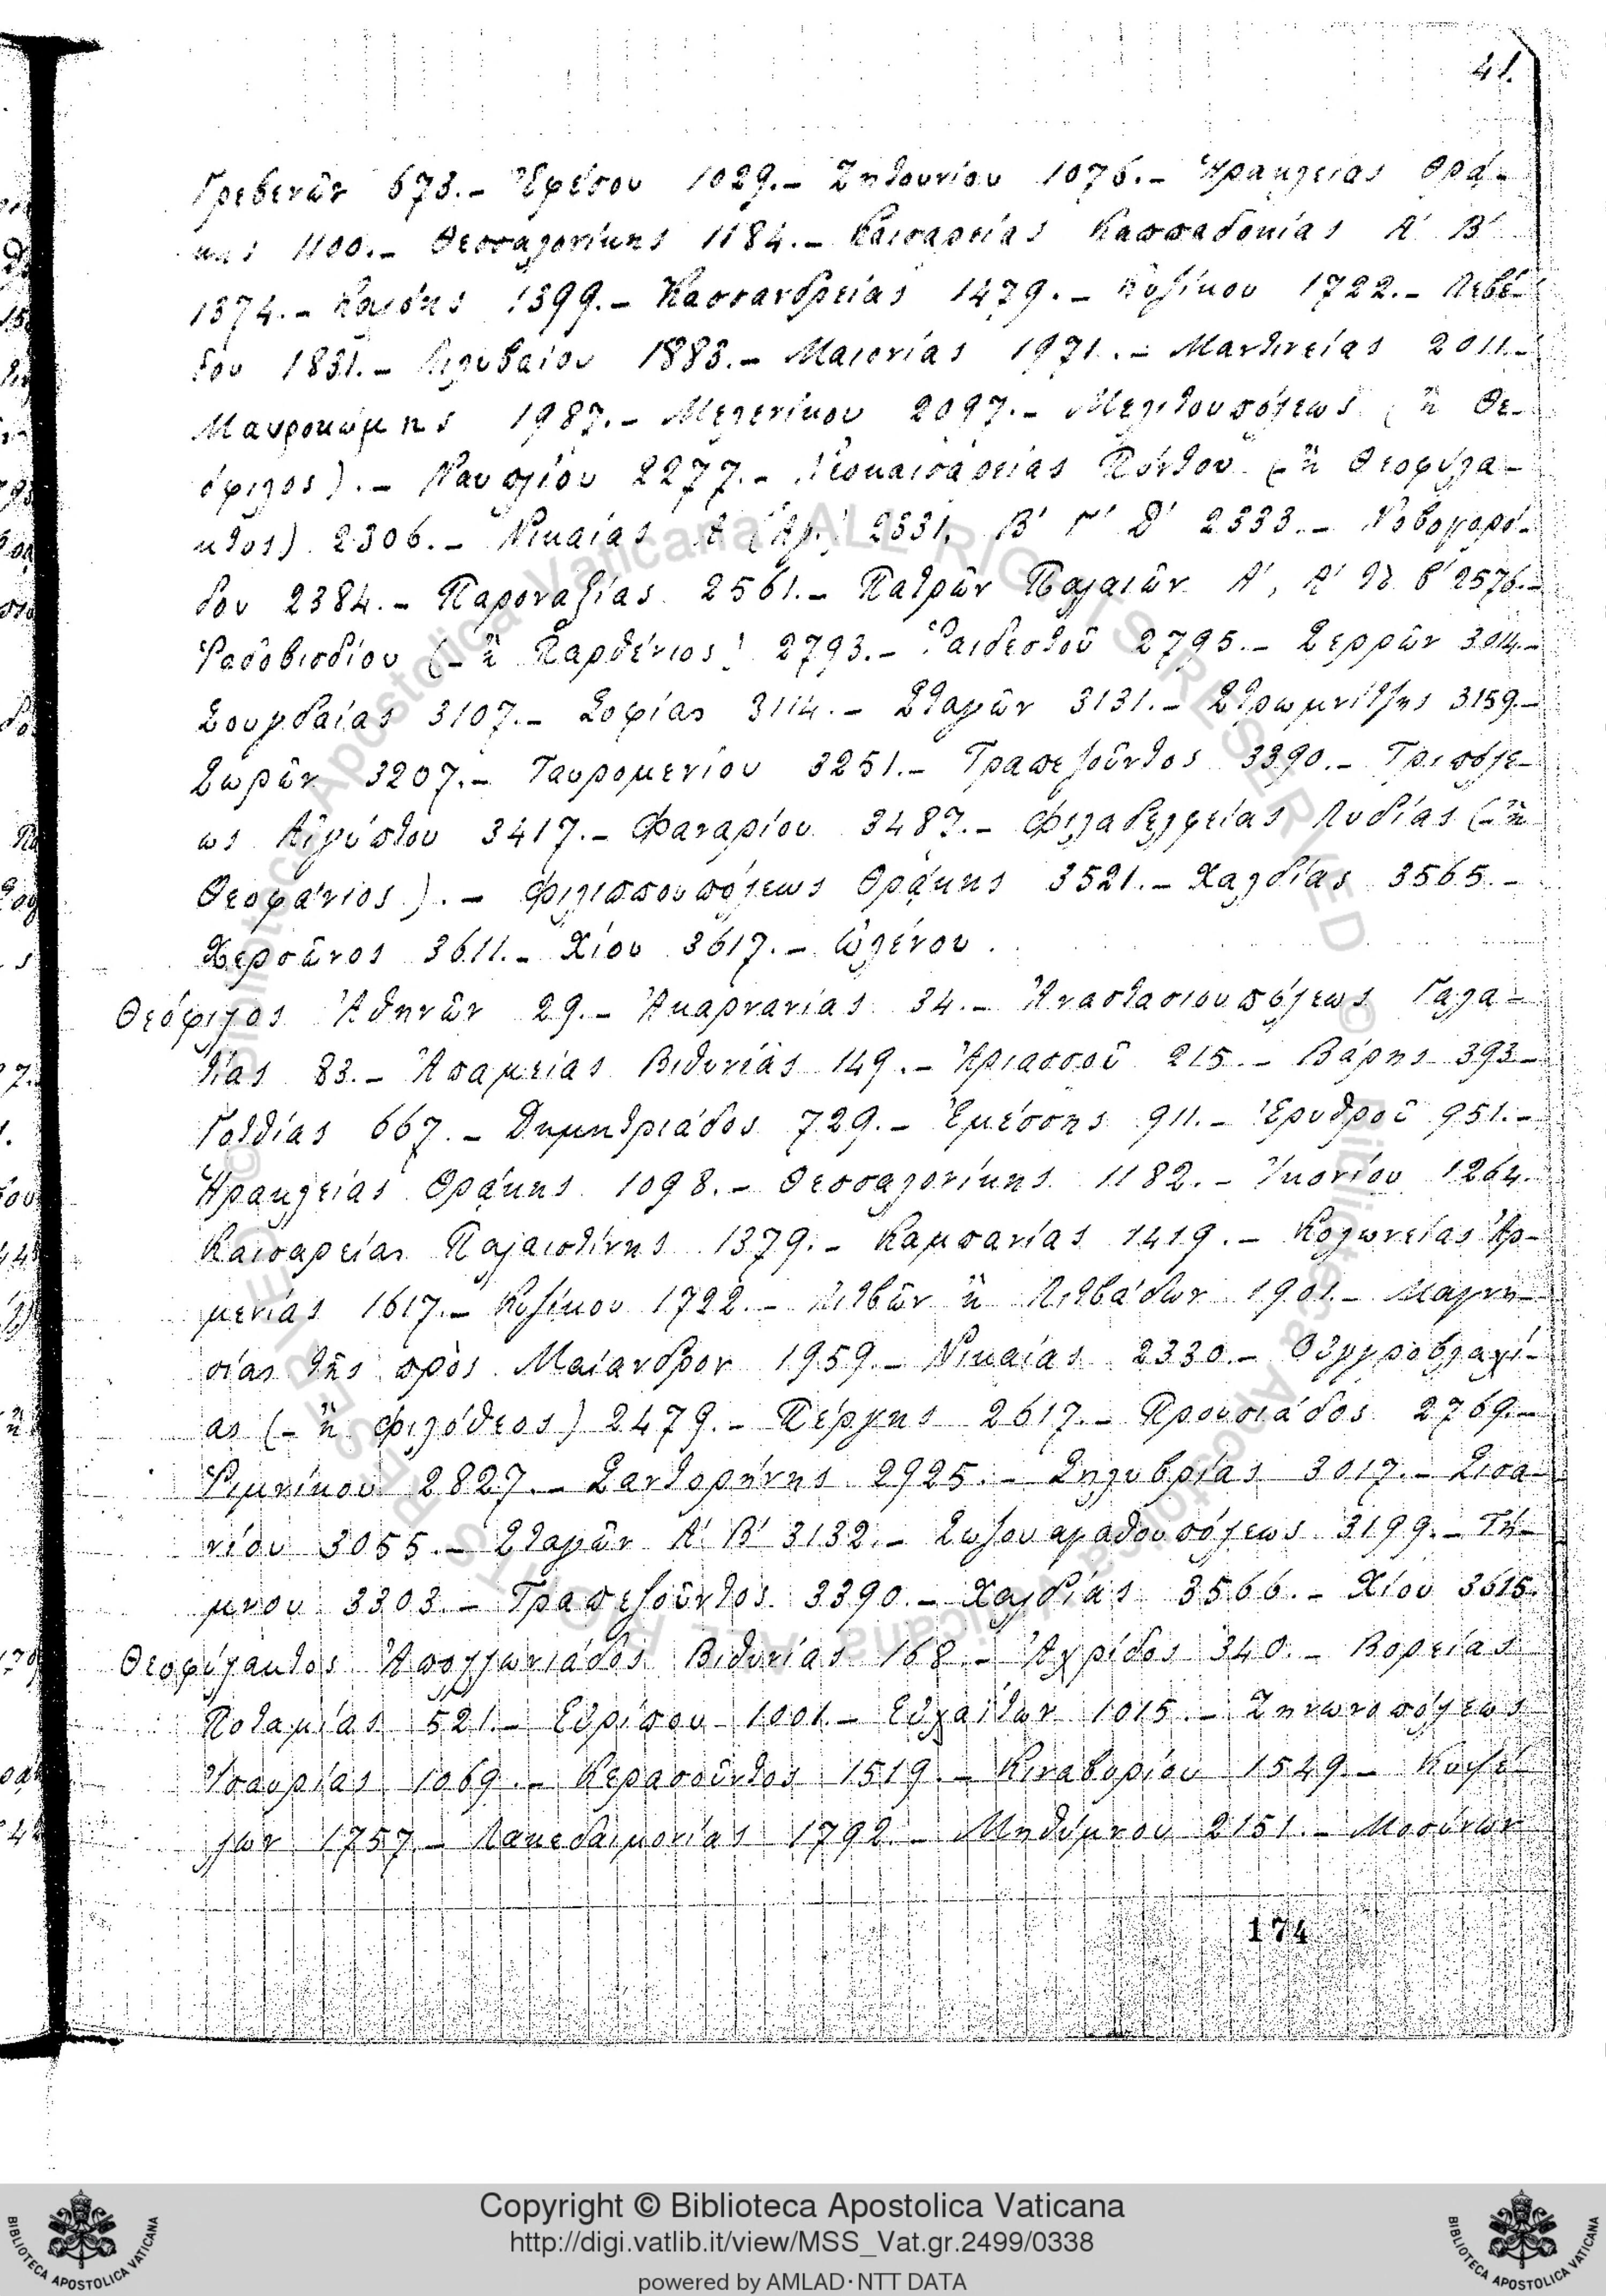 41.
Γρεβενῶν 673.- Ἐφέσου 1029.- Ζητουνίου 1076.- Ἡρακλείας Θρά-
κης 1100.- Θεσσαλονίκης 1184.- Καισαρείας Καππαδοκίας Α΄ Β΄
1374.- 1399.- Κασσανδρείας 1479.- Κυζίκου 1722.- Λεβέ-
δου 1831.- Λιλυβαίου 1883.- Μαιονίας 1971.- Μαντινείας 2011.-
Μαυροκώμης 1987.- Μελενίκου 2097.- Μελιτουπόλεως (ἢ Θε-
όφιλος).- Ναυπλίου 2277.- Νεοκαισαρείας Πόντου (-ἢ Θεοφύλα-
κτος) 2306.- Νικαίας Α΄ 2331, Β΄ Γ΄ Δ΄ 2333.- Νοβογορό-
δου 2384.- Παροναξίας 2561.- Πατρῶν Παλαιῶν Α΄, Α΄ τὸ β΄ 2576.-
Ραδοβισδίου (-ἢ Παρθένιος) 2793.- Ραιδεστοῦ 2795.- Σερρῶν 3014.-
Σουγδαίας 3107.- Σοφίας 3114.- Σταγῶν 3131.- Στρωμνίτζης 3159.-
Σωρῶν 3207.- Ταυρομενίου 3251.- Τραπεζοῦντος 3390.- Τριπόλε-
ως Αἰγύπτου 3417.- Φαναρίου 3487.- Φιλαδελφείας Λυδίας (-ἢ
Θεοφάνιος).- Φιλιππουπόλεως Θράκης 3521.- Χαλδίας 3565.-
Χερσῶνος 3611.- Χίου 3617.- Ὠλένου.
Θεόφιλος Ἀθηνῶν 29.- Ἀκαρνανίας 34.- Ἀναστασιουπόλεως Γαλα-
τίας 83.- Ἀπαμείας Βιθυνίας 149.- Ἀριασσοῦ 215.- Βάρης 393-
Γοτθίας 667.- Δημητριάδος 729.- Ἐμέσσης 911.- Ἐρυθροῦ 951.-
Ἡρακλείας Θράκης 1098.- Θεσσαλονίκης 1182.- Ἰκονίου 1264.
Καισαρείας Παλαιστίνης 1379.- Καμπανίας 1419.- Κολωνείας Ἀρ-
μενίας 1617.- Κυζίκου 1722.- Λιτβῶν ἢ Λιτβάδων 1901.- Μαγνη-
σίας τῆς πρὸς Μαίανδρον 1959.- Νικαίας 2330.- Οὑγγροβλαχί-
ας (-ἢ Φιλόθεος) 2479.- Πέργης 2617.- Προυσιάδος 2769.-
Ριμνίκου 2827.- Σαντορήνης 2925.- Σηλυβρίας 3017.- Σισα-
νίου 3055.- Σταγῶν Α΄ Β΄ 3132.- Σωζουαγαθουπόλεως 3199.- Τή-
μνου 3303.- Τραπεζοῦντος 3390.- Χαλδίας 3566.- Χίου 3615.
Θεοφύλακτος Ἀπολλωνιάδος Βιθυνίας 168.- Ἀχρίδος 340.- Βορείας
Ποταμίας 521.- Εὐρίπου 1001.- Εὐχαΐτων 1015.- Ζηνωνοπόλεως
Ἰσαυρίας 1069.- Κερασοῦντος 1519.- Κιναβορίου 1549.- Κυψέ-
λων 1757.- Λακεδαιμονίας 1792.- Μηθύμνου 2151.- Μοσύνων
174
Copyright © Biblioteca Apostolica Vaticana
http://digi.vatlib.it/view/MSS_Vat.gr.2499/0338
powered by AMLAD·NTT DATA
BIBLIOTECA APOSTOLICA VATICANA
BIBLIOTECA APOSTOLICA VATICANA